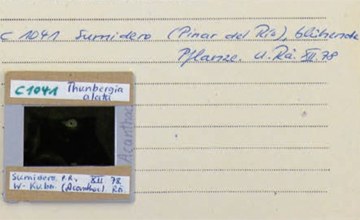 C 1041 Sumidero (Pinar del Río), blühende
Pflanze. U. Rà. XII. 78
C1041 Thunbergia
alata
Acanthac
Sumidero, P.R., XII 78
W-Kuba. (Acanthac) Rà.